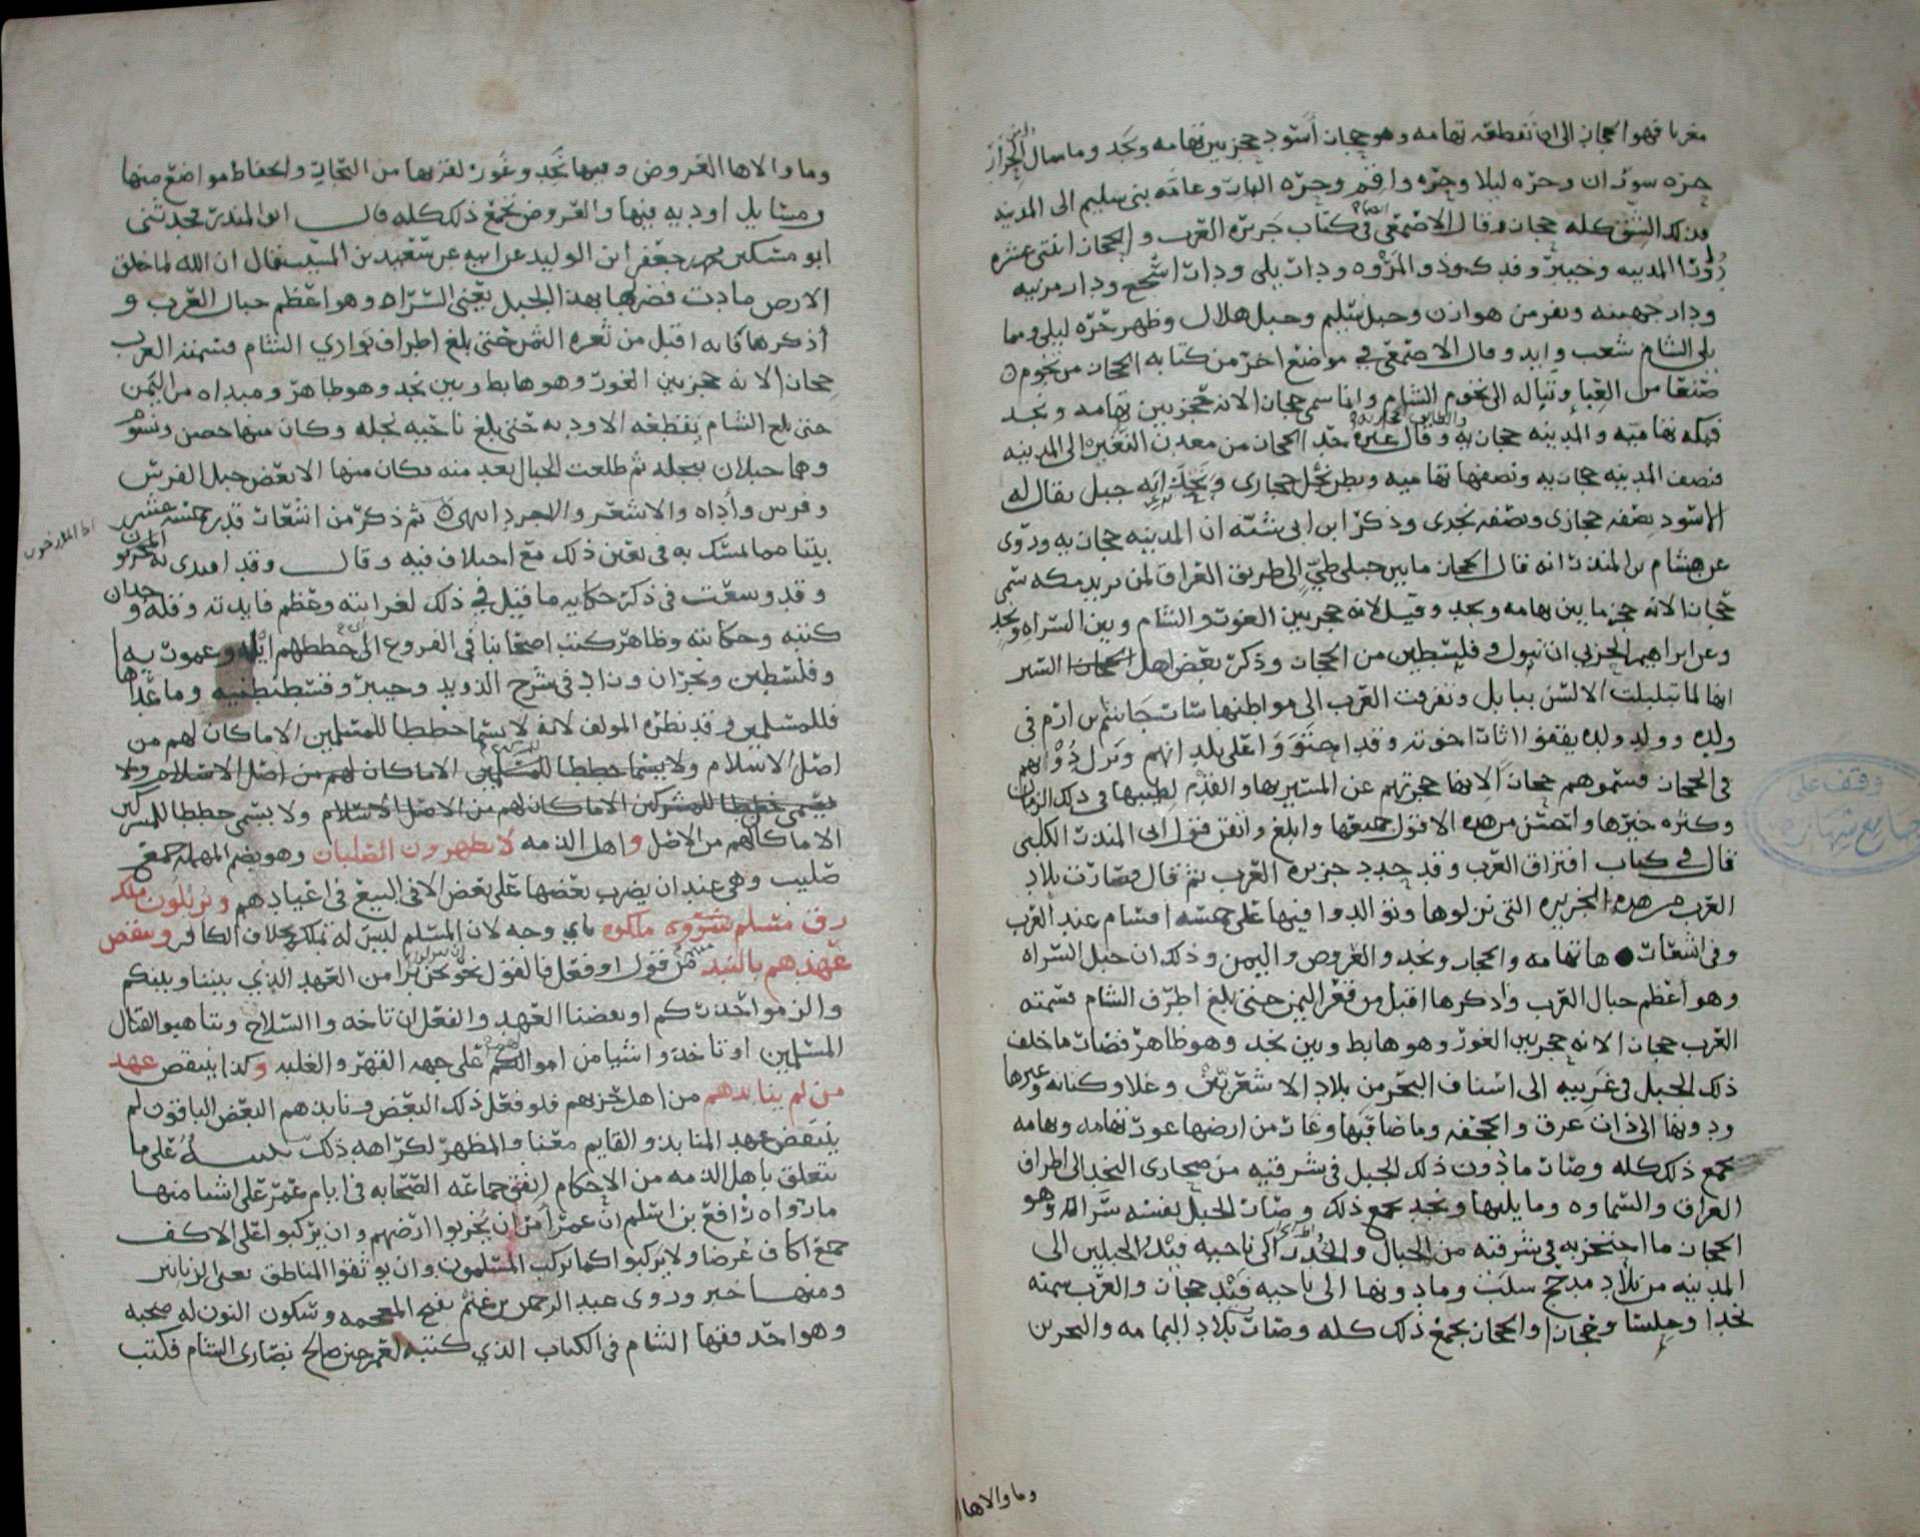 مغربا فهو الحجاز الى ان تقطعه تهامه وهو حجاز أسود حجز بين تهامه ونجد وما سال الحرار
حره سوران وحره ليلا وحره واقم وحره النار وعامه بنى سليم الى المدينه
فذلك الشق كله حجاز وقال الاصمعي فى كتاب جزيره العرب والحجاز اثنتى عشره
دورا المدينه وخيبر وفدك وذو المروه ودار بلى ودار اشجع ودار مزينه
ودار جهينه ونفر من هوازن وجل سليم وجل هلال وظهر حره ليلى ومما
يلى الشام شغب وابدا وقال الاصمعي في موضع اخر من كتابه الحجاز من تخوم
صنعا من العبلا وتباله الى تخوم الشام وانما سمى حجازا لانه حجز بين تهامه ونجد
فمكه تهاميه والمدينه حجازيه وقال غيره حد الحجاز من معدن النقره الى المدينه
فنصف المدينه حجازيه ونصفها تهاميه وبطن نخل حجازى وبحذائه جبل يقال له
الاسود نصفه حجازى ونصفه نجدى وذكر ابن ابى شبه ان المدينه حجازيه وروى
عن هشام بن المنذر انه قال الحجاز ما بين جبلى طي الى طريق العراق لمن يريد مكه سمى
حجازا لانه حجز ما بين تهامه ونجد وقيل لانه حجز بين الغور والشام وبين السراه ونجد
وعن ابراهيم الحربي ان تبوك وفلسطين من الحجاز وذكر بعض اهل السير
انها لما تبلبلت الالسن ببابل وتفرقت العرب الى مواطنها سار جاسم بن ارم فى
ولده وولد ولده يقفوا اثار اخوته وقد احتووا على بلدانهم ونزل دونهم
فى الحجاز فسموهم حجازا لانها حجزتهم عن المسير بها والقدم لطيبها فى ذلك الزمان
وكثره خيرها واحسن من هذه الاقوال جميعها وابلغ واتقن قول ابى المنذر الكلبى
قال فى كتاب افتراق العرب وقد حدد جزيره العرب ثم قال فصارت بلاد
العرب من هذه الجزيره التى نزلوها وتوالدوا فيها على خمسه اقسام عند العرب
وفى اشعارها تهامه والحجاز ونجد والعروض واليمن وذلك ان جبل السراه
وهو اعظم جبال العرب واذكرها اقبل من قعر اليمن حتى بلغ اطراف الشام فسمته
العرب حجازا لانه حجز بين الغور وهو هابط وبين نجد وهو ظاهر فصار ما خلف
ذلك الجبل فى غربيه الى اسياف البحر من بلاد الاشعريين وعك وكنانه وغيرها
ودونها الى ذات عرق والجحفه وما صاقبها وغار من ارضها غور تهامه وتهامه
تجمع ذلك كله وصار ما دون ذلك الجبل فى شرقيه من صحارى النجد الى اطراف
العراق والسماوه وما يليها ونجد تجمع ذلك وصار الجبل نفسه سراته وهو
الحجاز ما احتجز به فى شرقيه من الجبال وانحدر الى ناحيه فيد والجبلين الى
المدينه من بلاد مذحج تثليث وما دونها الى ناحيه فيد حجاز والعرب تسميه
نجدا وجلسا وحجازا والحجاز يجمع ذلك كله وصارت بلاد اليمامه والبحرين
وما والاها
وقف على
جامع شهاره
وما والاها العروض وفيها نجد وغور لقربها من البحار وانخفاض مواضع منها
ومسايل اوديه فيها والعروض تجمع ذلك كله قال ابو المنذر فحدثنى
ابو مسكين محمد بن جعفر ابن الوليد عن ابيه عن سعيد بن المسيب قال ان الله لما خلق
الارض مادت فضربها بهذا الجبل يعنى السراه وهو اعظم جبال العرب و
أذكرها فانه اقبل من ثغره اليمن حتى بلغ اطراف بوادي الشام فسمته العرب
حجازا لانه حجز بين الغور وهو هابط وبين نجد وهو ظاهر ومبداه من اليمن
حتى بلغ الشام يقطعه الاوديه حتى بلغ ناحيه نخله وكان منها حصن ويسوم
وهما جبلان بنخله ثم طلعت الجبال بعد منه فكان منها الابيض جبل العرش
وقدس وأداه والاشعر والاجرد انتهى ثم ذكر من اشعار قدر خمسه عشر
بيتا مما تمسك به فى تعيين ذلك مع اختلاف فيه وقال وقد
وقد وسعت فى ذكر حكايه ما قيل في ذلك لغرابته وعظم فايدته وقله وجدان
كتبه وحكايته وظاهر كتب اصحابنا فى الفروع الى خططهم ايله وعموريه
وفلسطين ونجران وزاد فى شرح الذويد وخيبر وقسطنطينيه وما عداها
فللمسلمين وقد نظره المولف لانه لا يسما خططا للمسلمين الا ما كان لهم من
اصل الاسلام ولا يسما خططا للمسلمين الا ما كان لهم من اصل الاسلام ولا
يسمى خططا للمشركين الا ما كان لهم من الاصل الاسلام ولا يسمى خططا للمشركين
الا ما كان لهم من الاصل واهل الذمه لا يظهرون الصلبان وهو بضم المهمله جمع
صليب وهى عيدان يضرب بعضها على بعض الا فى البيع فى اعيادهم ويزيلون ملك
رق مسلم شروى ملكوه باي وجه لان المسلم ليس له تملك بخلاف الكافر وينقض
عهدهم بالنبذ من قول او فعل فالقول نحو نحن برا من العهد الذي بيننا وبينكم
والزموا حذركم او نقضنا العهد والفعل ان تاخذوا السلاح ويتاهبوا لقتال
المسلمين او تاخذوا شيا من اموالكم على جهه القهر والغلبه وكذا ينتقض عهد
من لم ينابذهم من اهل حزبهم فلو فعل ذلك البعض ونابذهم البعض الباقون لم
ينتقض عهد المنابذ والقايم معنا والمظهر لكراهه ذلك تنبيه على ما
يتعلق باهل الذمه من الاحكام اتفق جماعه الصحابه فى ايام عمر على اشيا منها
ما رواه نافع بن اسلم ان عمر أمر ان يخربوا ارضهم وان يركبوا على الاكف
جمع اكاف عرضا ولا يركبوا كما يركب المسلمون وان يوثقوا المناطق يعنى الزنانير
ومنها خبر وروى عبد الرحمن بن غنم بفتح المعجمه وسكون النون له صحبه
وهو احد فقها الشام فى الكتاب الذي كتبه لعمر حين صالح نصارى الشام فكتب